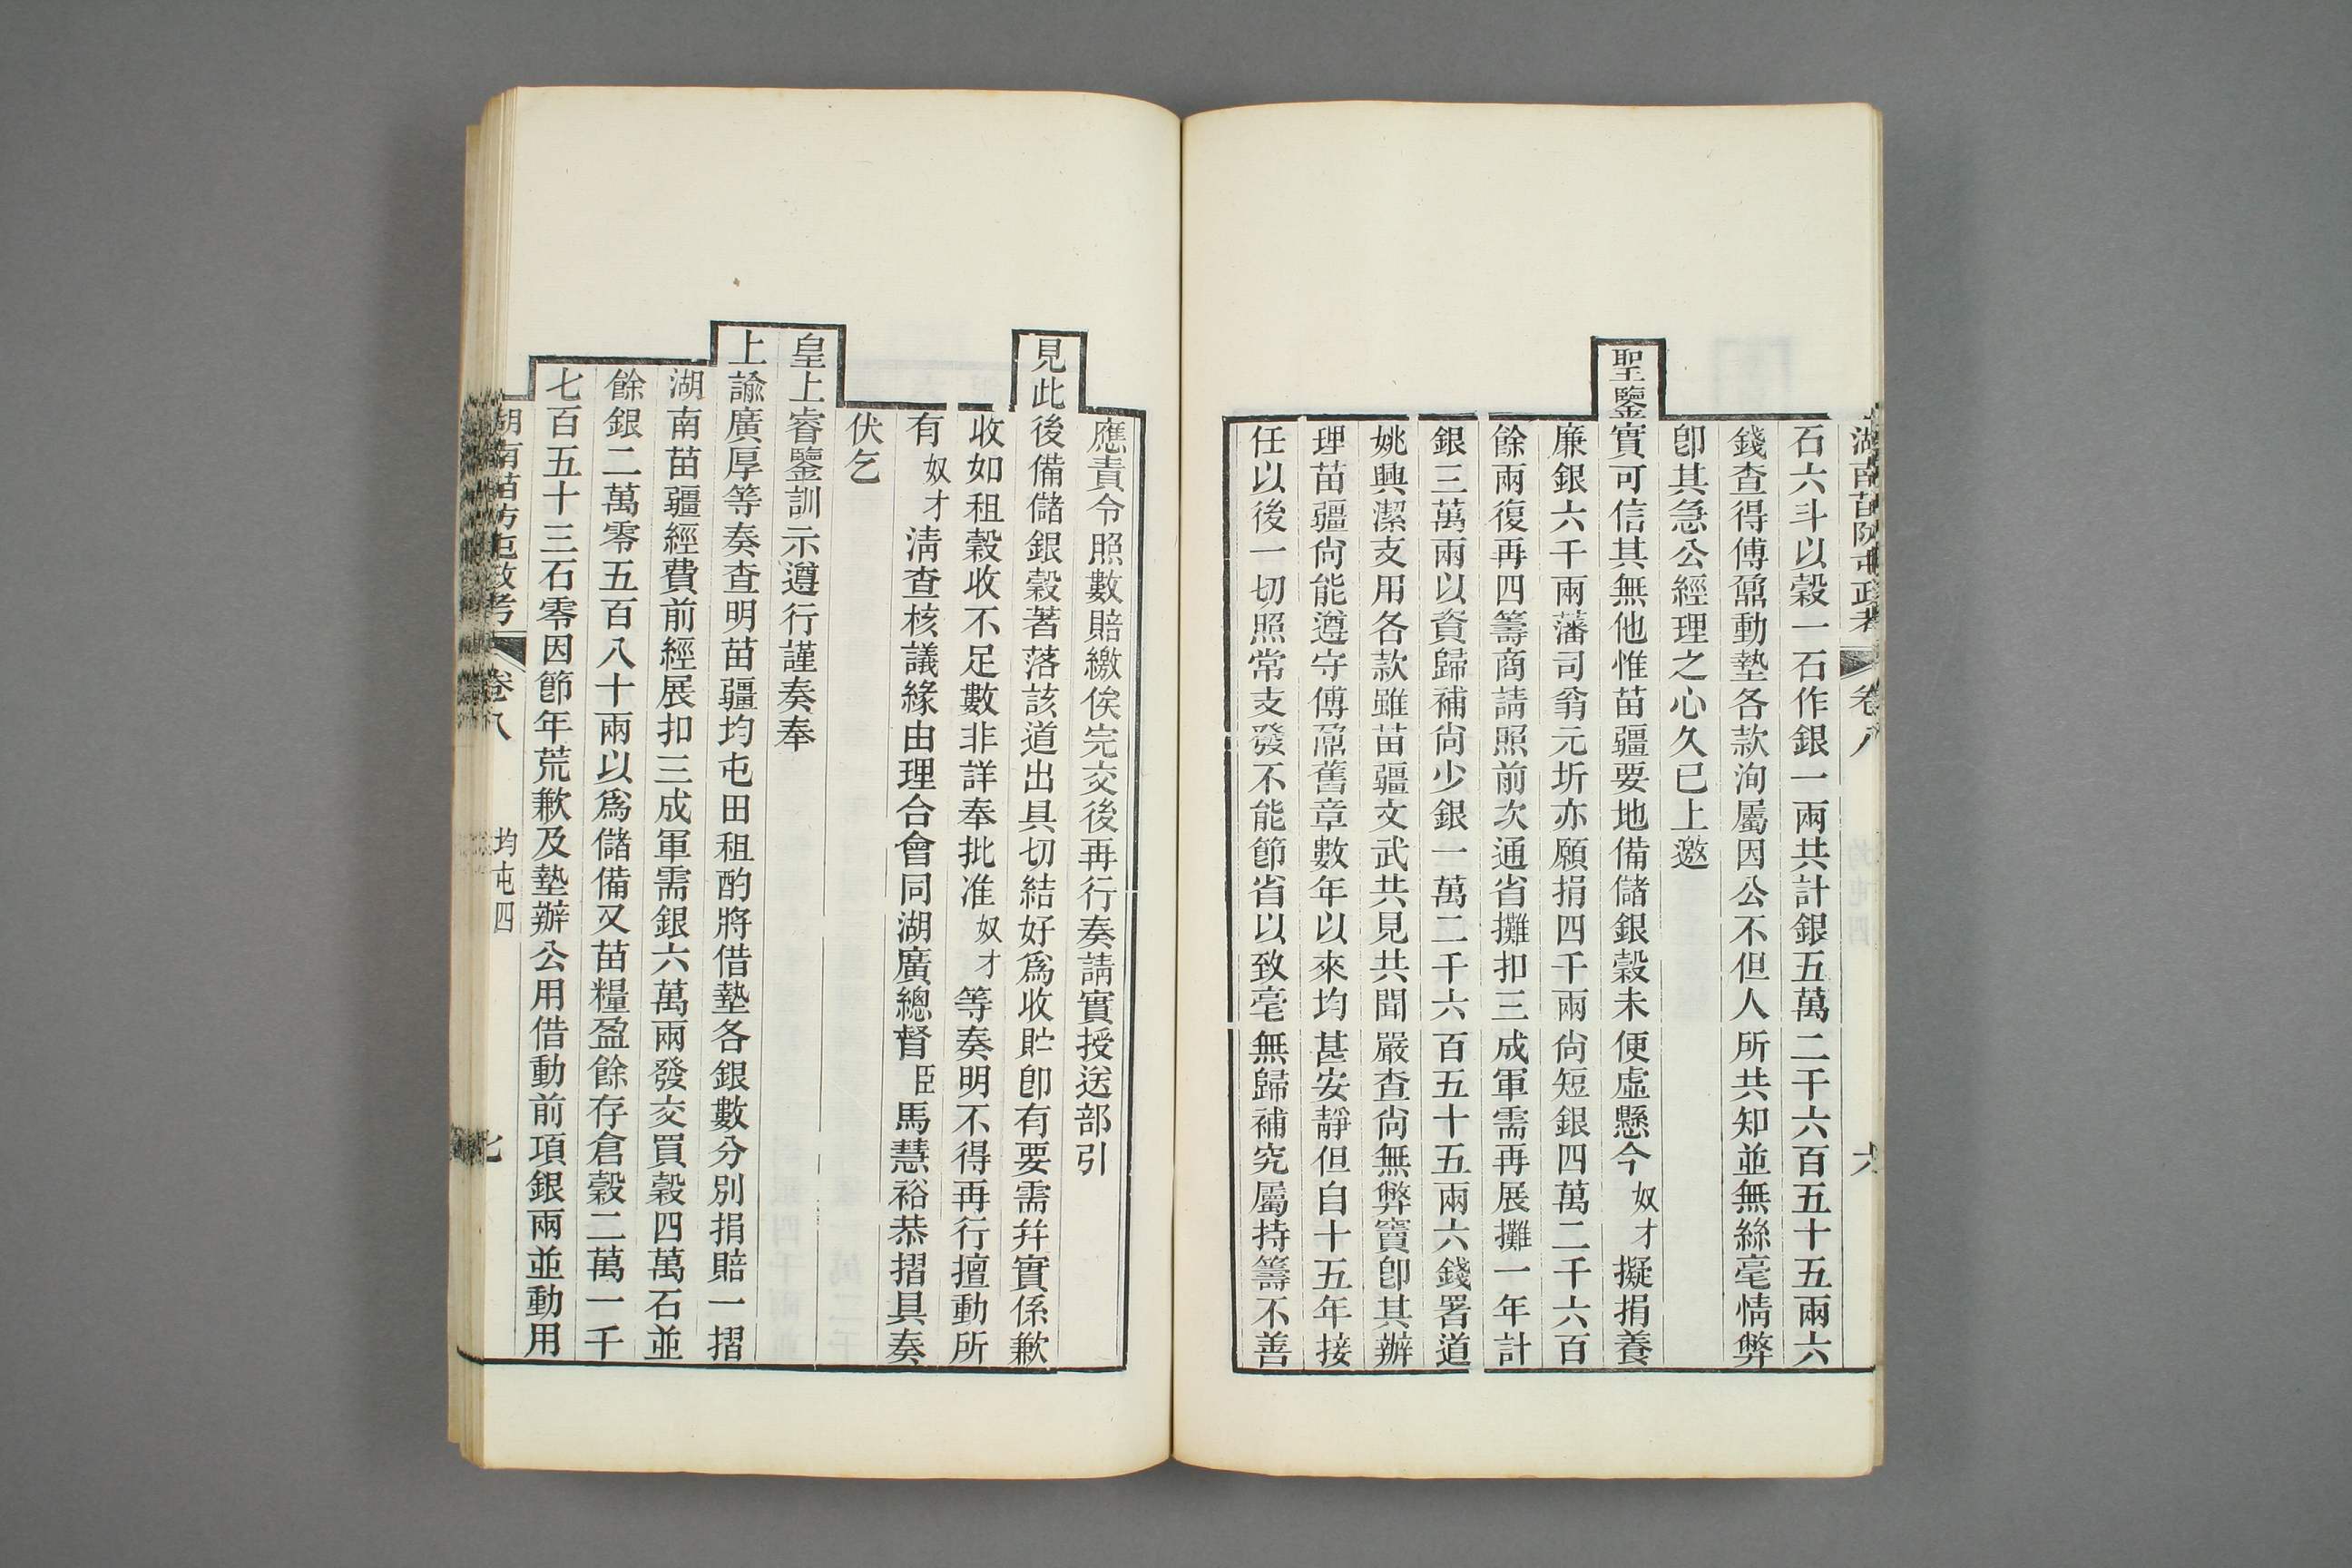 湖南苗防屯政考 卷八 六
石六斗以穀一石作銀一兩共計銀五萬二千六百五十五兩六
錢查得傅鼐動墊各款洵屬因公不但人所共知並無絲毫情弊
卽其急公經理之心久已上邀
聖鑒實可信其無他惟苗疆要地備儲銀穀未便虛懸今奴才擬捐養
廉銀六千兩藩司翁元圻亦願捐四千兩尙短銀四萬二千六百
餘兩復再四籌商請照前次通省攤扣三成軍需再展攤一年計
銀三萬兩以資歸補尙少銀一萬二千六百五十五兩六錢署道
姚興潔支用各款雖苗疆文武共見共聞嚴查尙無弊竇卽其辦
理苗疆尙能遵守傅鼐舊章數年以來均甚安靜但自十五年接
任以後一切照常支發不能節省以致毫無歸補究屬持籌不善
應責令照數賠繳俟完交後再行奏請實授送部引
見此後備儲銀穀著落該道出具切結好爲收貯卽有要需幷實係歉
收如租穀收不足數非詳奉批准奴才等奏明不得再行擅動所
有奴才淸查核議緣由理合會同湖廣總督臣馬慧裕恭摺具奏
伏乞
皇上睿鑒訓示遵行謹奏奉
上諭廣厚等奏查明苗疆均屯田租酌將借墊各銀數分別捐賠一摺
湖南苗疆經費前經展扣三成軍需銀六萬兩發交買穀四萬石並
餘銀二萬零五百八十兩以爲儲備又苗糧盈餘存倉穀二萬一千
七百五十三石零因節年荒歉及墊辦公用借動前項銀兩並動用
湖南苗防屯政考 卷八 均屯四 七